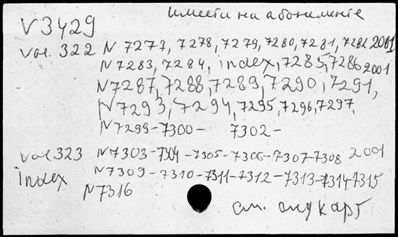 имеется на абонементе
V 3429
vol. 322 N 7277, 7278, 7279, 7280, 7281, 7282 2001
N 7283, 7284, index, 7285, 7286 2001
N 7287, 7288, 7289, 7290, 7291,
N 7293, 7294, 7295, 7296, 7297,
N 7299-7300- 7302-
vol 323 N 7303-7304-7305-7306-7307-7308 2001
index N 7309-7310-7311-7312-7313-7314-7315
N 7316
см. след карт